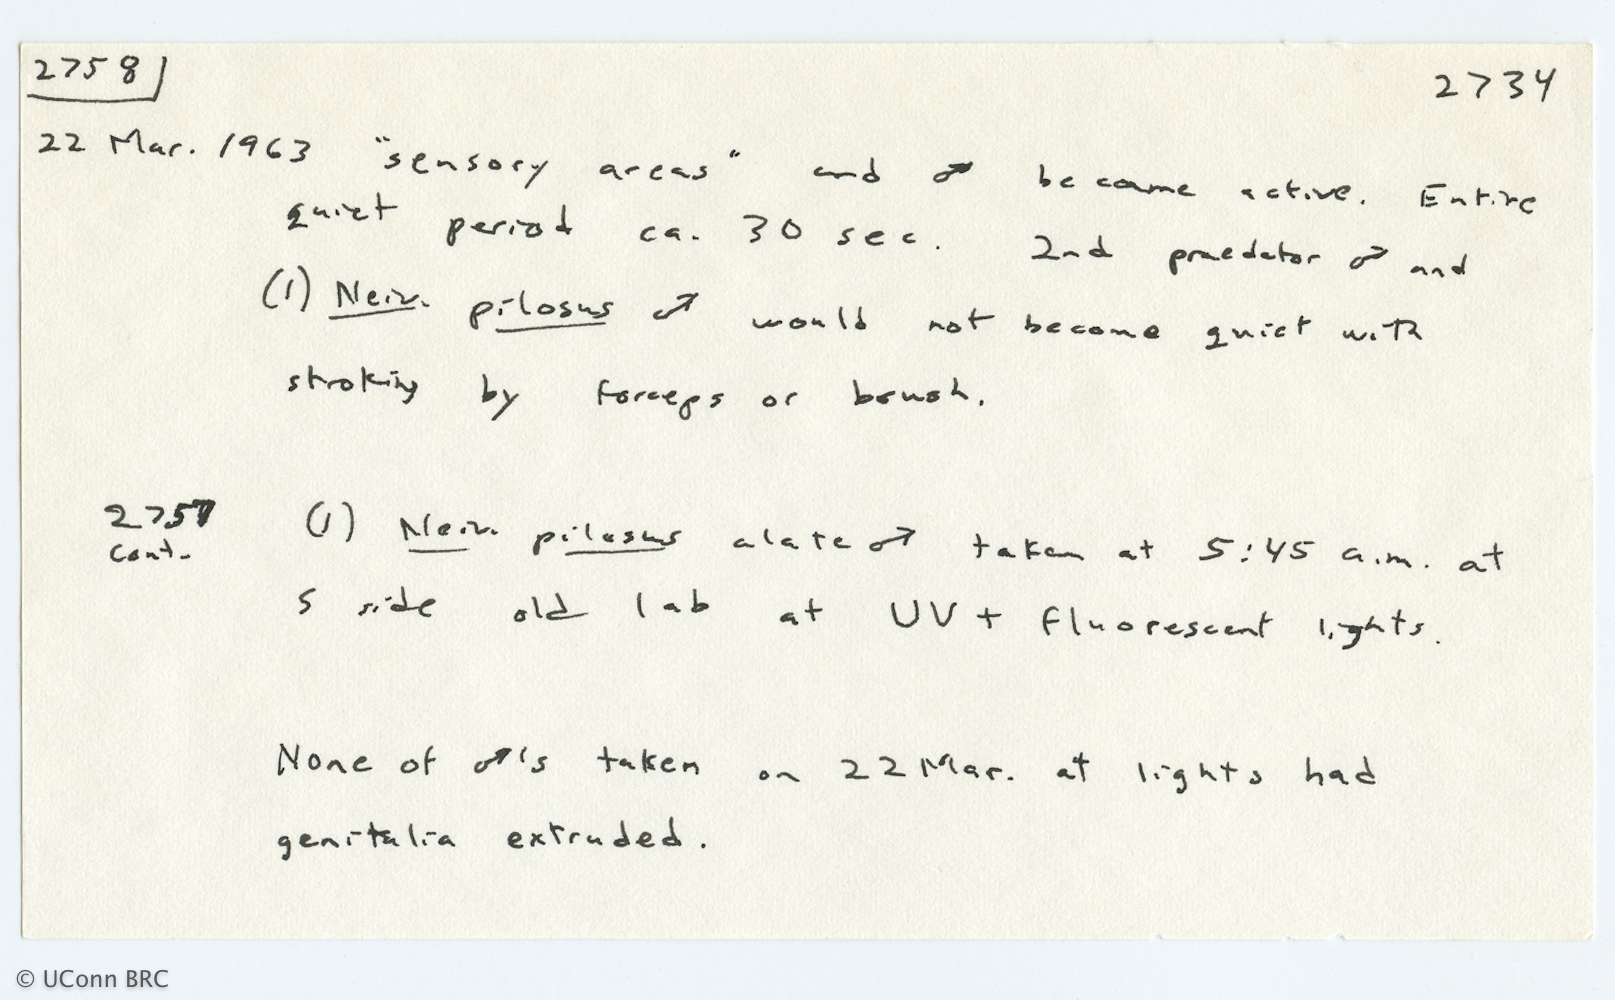 2758
2734
22 Mar. 1963 "sensory areas" and ♂ became active. Entire
quiet period ca. 30 sec. 2nd praedator ♂ and
(1) Neiv. pilosus ♂ would not become quiet with
stroking by forceps or brush.
2757 (1) Neiv. pilosus alate ♂ taken at 5:45 a.m. at
cont.
S side old lab at UV + fluorescent lights.
None of ♂'s taken on 22 Mar. at lights had
genitalia extruded.
© UConn BRC